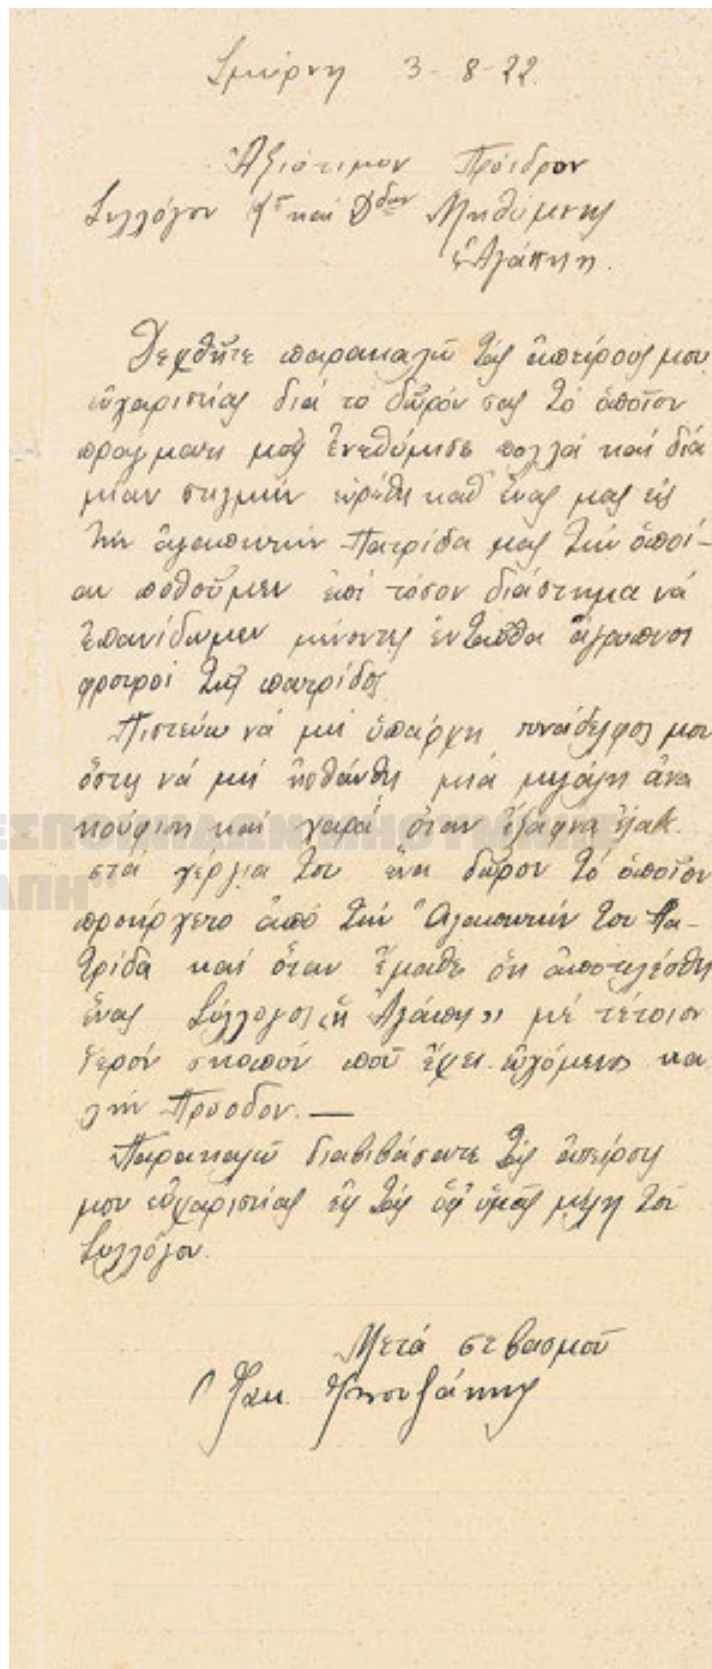 Σμύρνη 3-8-22
Ἀξιότιμον Πρόεδρον
Συλλόγου Κας καὶ Δδων Μηθύμνης
"Ἀγάπην".
Δεχθῆτε παρακαλῶ τὰς ἀπείρους μου
εὐχαριστίας διά το δῶρόν σας τὸ ὁποῖον
πραγματι μοῦ ἐνεθύμισε πολλά καί διά
μίαν στιγμήν εὑρέθη καθ' ἕνας μας εἰς
τὴν ἀγαπητήν Πατρίδα μας τὴν ὁποί-
αν ποθοῦμεν ἐπί τόσον διάστημα νά
ἐπανίδωμεν μένοντες ἐνταῦθα ἄγρυπνοι
φρουροί τῆς πατρίδος
Πιστεύω νά μή ὑπάρχη συνάδελφος μου
ὅστις νά μή ᾐσθάνθη μιά μεγάλη ἀνα
κούφιση καί χαρά, ὅταν ἔξαφνα ἔλαβε
στά χέρια του ἕνα δῶρον τό ὁποῖον
προήρχετο ἀπό τήν Ἀγαπητήν του Πα-
τρίδα καί ὅταν ἔμαθε ὅτι ἀπετελέσθη
ἕνας Σύλλογος «ἡ Ἀγάπη» μέ τέτοιον
ἱερόν σκοπόν ποῦ ἔχει. εὐχόμενος κα
λήν Πρόοδον. —
Παρακαλῶ διαβιβάσατε τάς ἀπείρους
μου εὐχαριστίας εἰς τάς ὑφ' ὑμᾶς μέλη τοῦ
Συλλόγου.
Μετά σεβασμοῦ